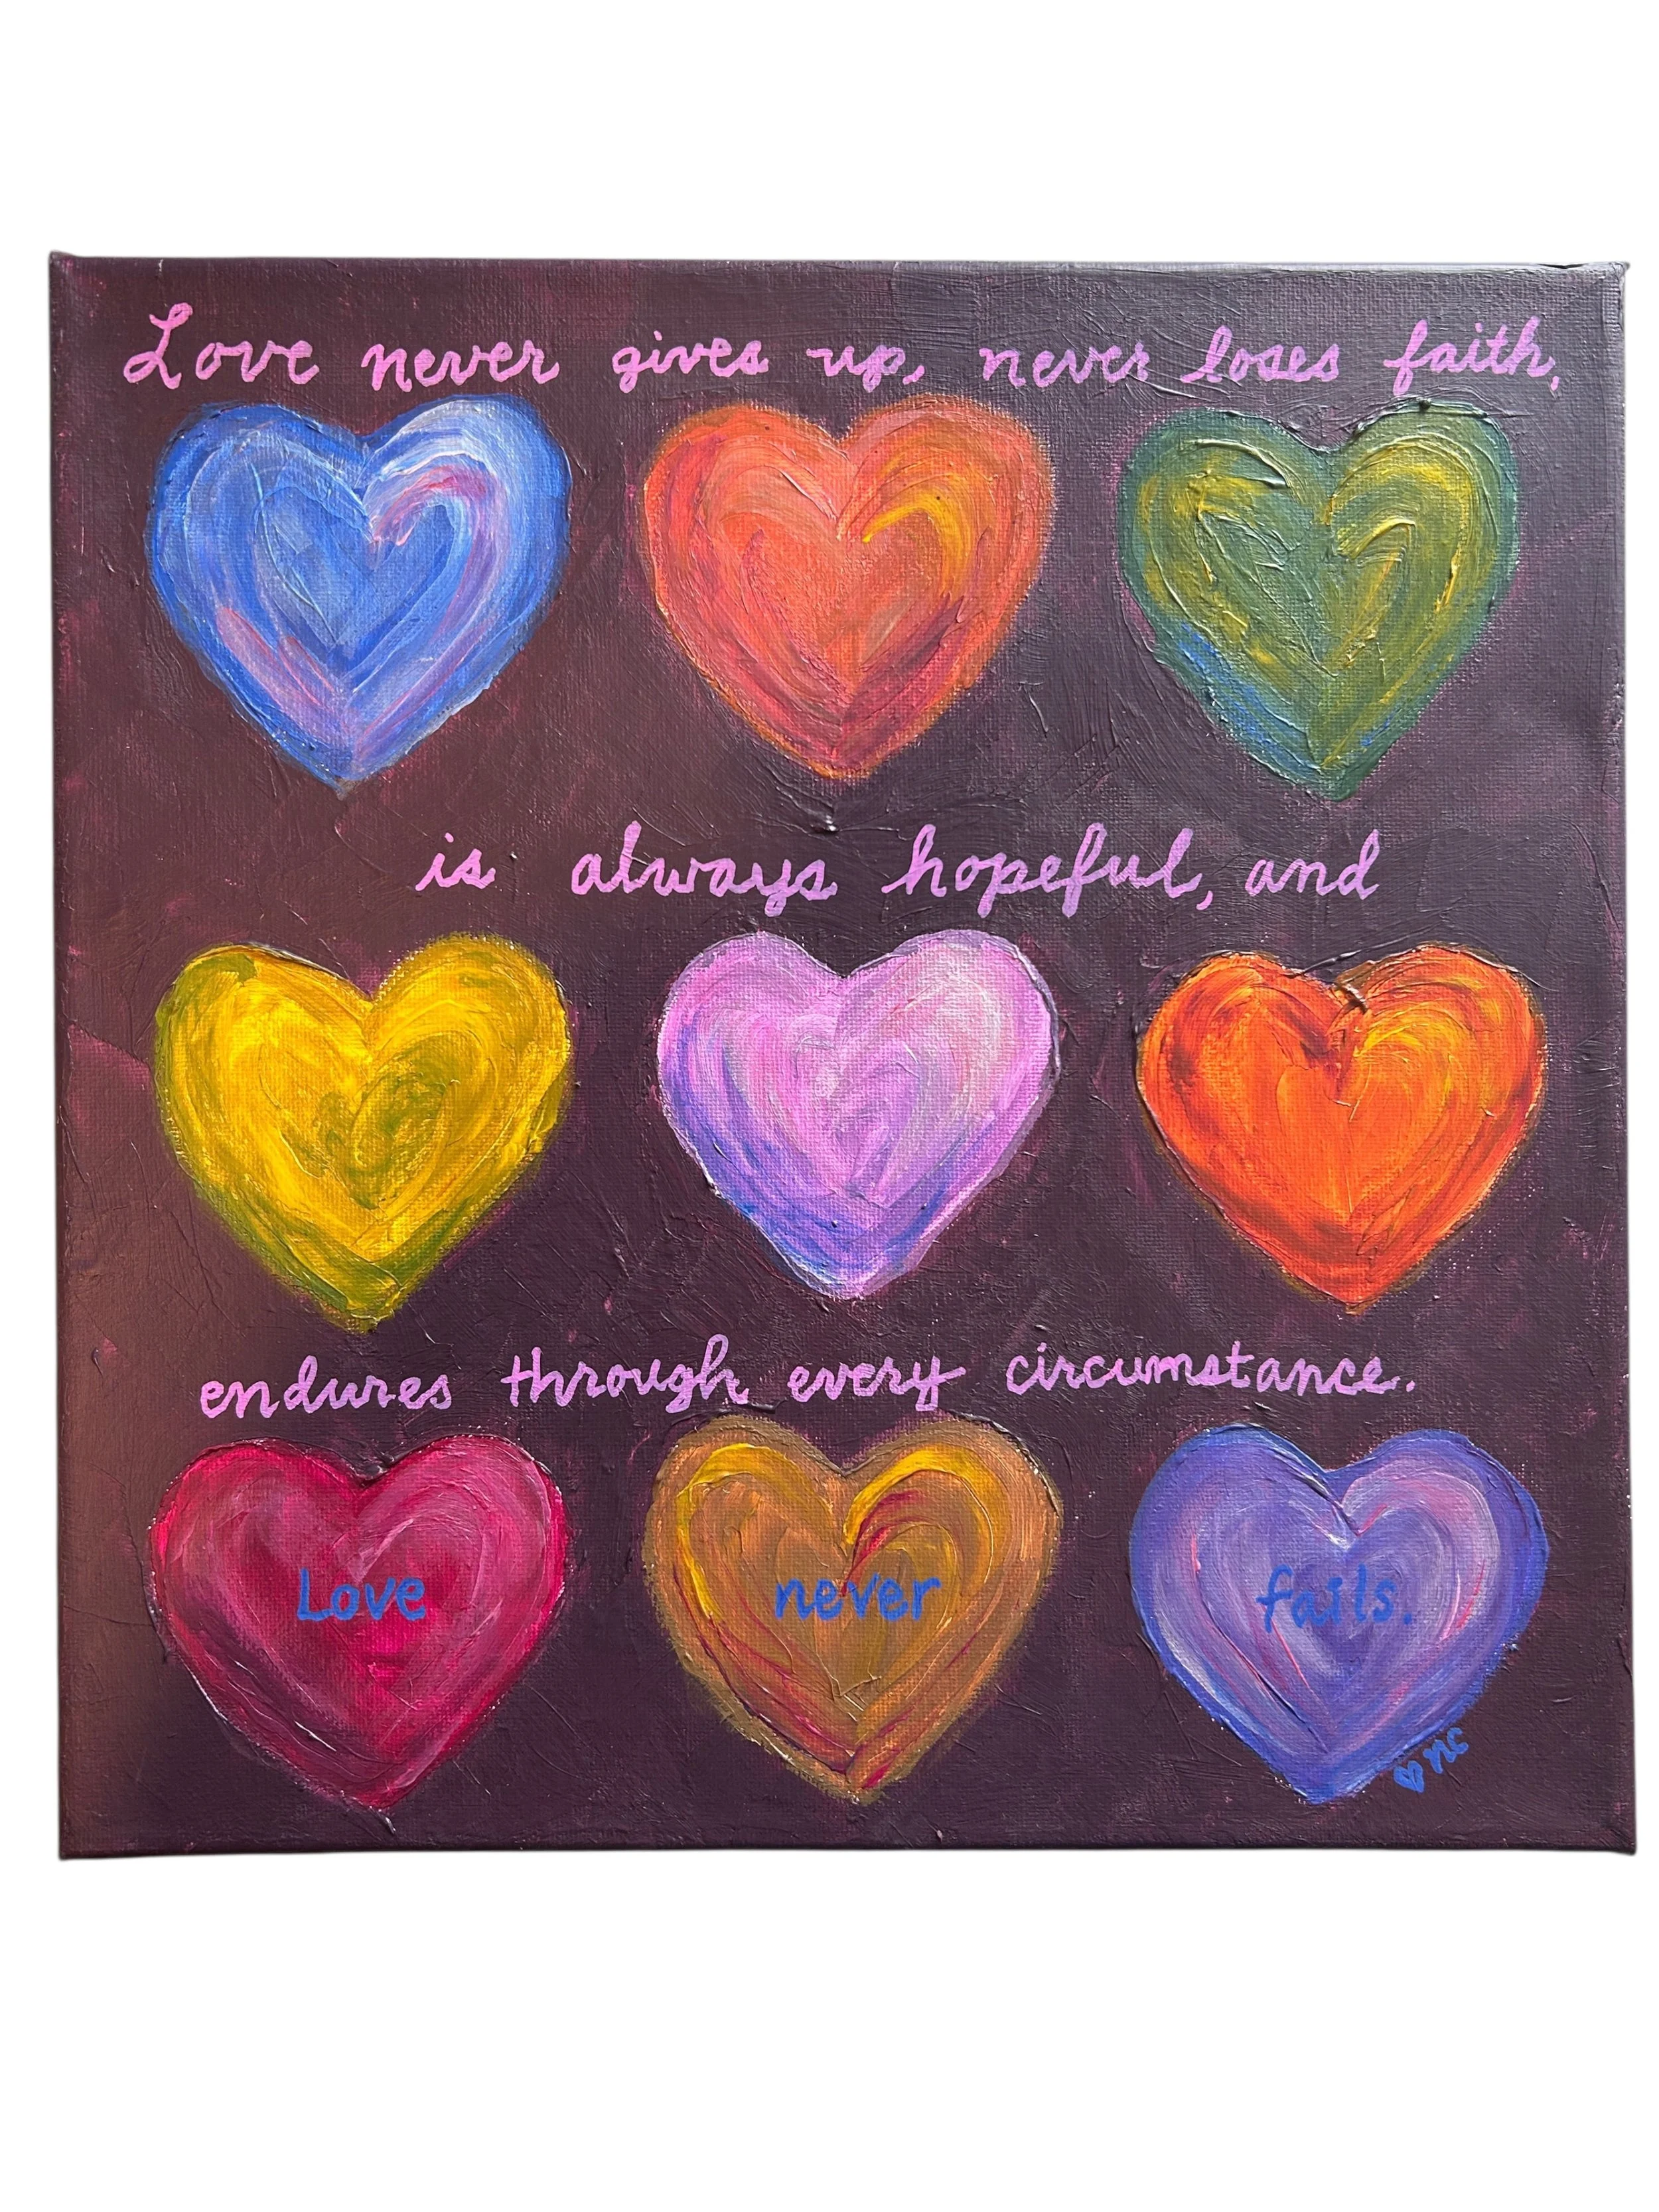 Love never gives up, never loses faith,
is always hopeful, and
endures through every circumstance.
Love never fails.
♥ nc